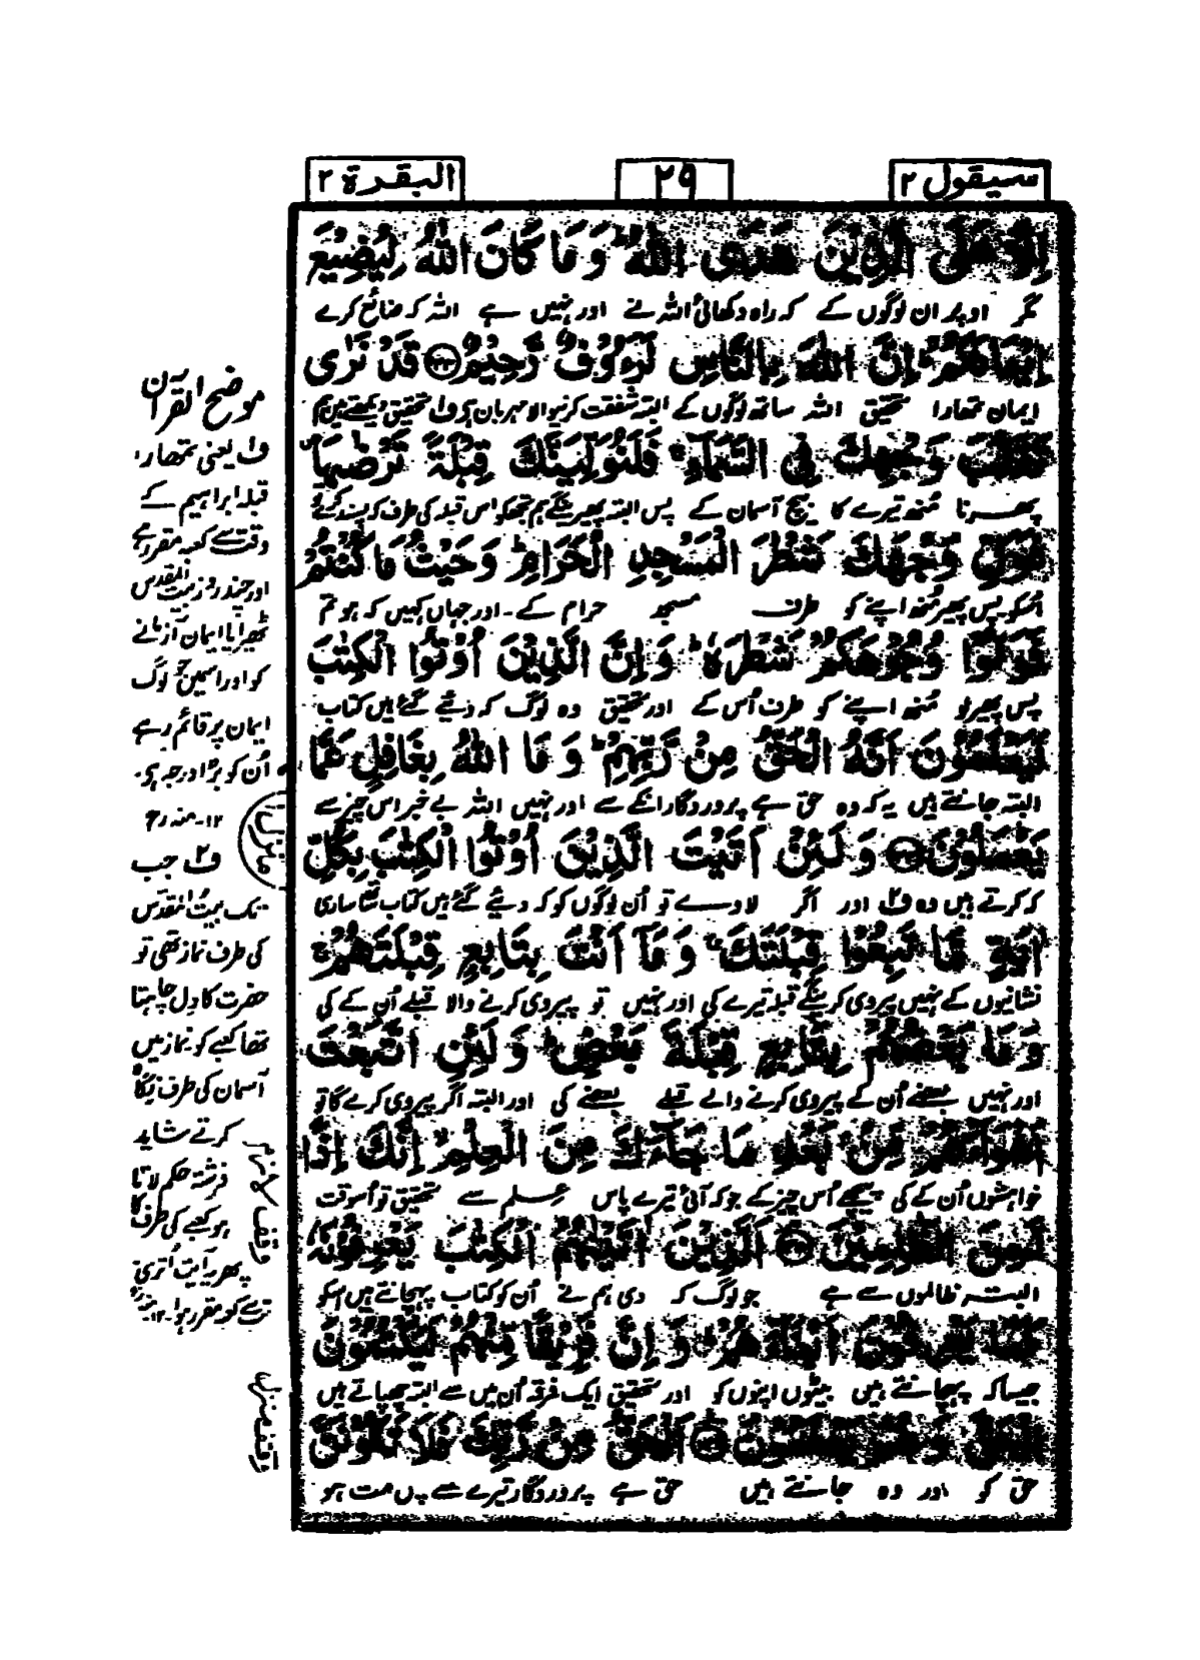 سيقول ٢
٢٩
البقرة ٢
إِلَّا عَلَى الَّذِيْنَ هَدَى اللّٰهُ ؕ وَمَا كَانَ اللّٰهُ لِيُضِيْعَ
مگر اوپر ان لوگوں کے کہ راہ دکھائی اللہ نے اور نہیں ہے اللہ کہ ضائع کرے
اِيْمَانَكُمْ ؕ اِنَّ اللّٰهَ بِالنَّاسِ لَرَءُوْفٌ رَّحِيْمٌ ﴿۱۴۳﴾ قَدْ نَرٰى
ایمان تمہارا تحقیق اللہ ساتھ لوگوں کے البتہ شفقت کرنیوالا مہربان ہے ف۱ تحقیق دیکھتے ہیں ہم
تَقَلُّبَ وَجْهِكَ فِى السَّمَآءِ ۚ فَلَنُوَلِّيَنَّكَ قِبْلَةً تَرْضٰىهَا ۪
پھرنا منھ تیرے کا بیچ آسمان کے پس البتہ پھیرینگے ہم تجھکو اس قبلہ کی طرف کہ پسند کرے تو
فَوَلِّ وَجْهَكَ شَطْرَ الْمَسْجِدِ الْحَرَامِ ؕ وَحَيْثُ مَا كُنْتُمْ
اسکو پس پھیر منھ اپنے کو طرف مسجد حرام کے۔ اور جہاں کہیں کہ ہو تم
فَوَلُّوْا وُجُوْهَكُمْ شَطْرَهٗ ؕ وَاِنَّ الَّذِيْنَ اُوْتُوا الْكِتٰبَ
پس پھیرو منھ اپنے کو طرف اُس کے اور تحقیق وہ لوگ کہ دئیے گئے ہیں کتاب
لَيَعْلَمُوْنَ اَنَّهُ الْحَقُّ مِنْ رَّبِّهِمْ ؕ وَمَا اللّٰهُ بِغَافِلٍ عَمَّا
البتہ جانتے ہیں یہ کہ وہ حق ہے پروردگار انکے سے اور نہیں اللہ بے خبر اس چیز سے
يَعْمَلُوْنَ ﴿۱۴۴﴾ وَلَئِنْ اَتَيْتَ الَّذِيْنَ اُوْتُوا الْكِتٰبَ بِكُلِّ
کہ کرتے ہیں وہ ف۲ اور اگر لاوے تو اُن لوگوں کو کہ دیئے گئے ہیں کتاب ساری
اٰيَةٍ مَّا تَبِعُوْا قِبْلَتَكَ ۚ وَمَآ اَنْتَ بِتَابِعٍ قِبْلَتَهُمْ ۚ
نشانیوں کے نہیں پیروی کرینگے قبلہ تیرے کی اور نہیں تو پیروی کرنے والا قبلے اُن کے کی
وَمَا بَعْضُهُمْ بِتَابِعٍ قِبْلَةَ بَعْضٍ ؕ وَلَئِنِ اتَّبَعْتَ
اور نہیں بعضے اُن کے پیروی کرنے والے قبلے بعضے کی اور البتہ اگر پیروی کرے گا تو
اَهْوَآءَهُمْ مِّنْۢ بَعْدِ مَا جَآءَكَ مِنَ الْعِلْمِ ۙ اِنَّكَ اِذًا
خواہشوں اُن کے کی پیچھے اُس چیز کے جو کہ آئی تیرے پاس علم سے تحقیق تو اُسوقت
لَّمِنَ الظّٰلِمِيْنَ ﴿۱۴۵﴾ اَلَّذِيْنَ اٰتَيْنٰهُمُ الْكِتٰبَ يَعْرِفُوْنَهٗ
البتہ ظالموں سے ہے جو لوگ کہ دی ہم نے اُن کو کتاب پہچانتے ہیں اسکو
كَمَا يَعْرِفُوْنَ اَبْنَآءَهُمْ ؕ وَاِنَّ فَرِيْقًا مِّنْهُمْ لَيَكْتُمُوْنَ
جیسا کہ پہچانتے ہیں بیٹوں اپنوں کو اور تحقیق ایک فرقہ اُن میں سے البتہ چھپاتے ہیں
الْحَقَّ وَهُمْ يَعْلَمُوْنَ ﴿۱۴۶﴾ اَلْحَقُّ مِنْ رَّبِّكَ فَلَا تَكُوْنَنَّ
حق کو اور وہ جانتے ہیں حق ہے پروردگار تیرے سے پس مت ہو
موضح القرآن
ف۱ یعنی تمھارا
قبلہ ابراہیم کے
وقت سے کعبہ مقرر ہے
اور چند روز بیت المقدس
ٹھیرایا ایمان آزمانے
کو اور اسمیں جو لوگ
ایمان پر قائم رہے
اُن کو بڑا درجہ ہے۔
۱۲۔ منہ رح
ف۲ جب
تک بیت المقدس
کی طرف نماز تھی تو
حضرت کا دل چاہتا
تھا کعبے کو نماز میں
آسمان کی طرف نگاہ
کرتے شاید
فرشتہ حکم لاتا
ہو کعبے کی طرف کا
پھر یہ آیت اُتری
تب سے کعبہ مقرر ہوا۔ ۱۲۔ منہ رح
وقف لازم
وقف منزل